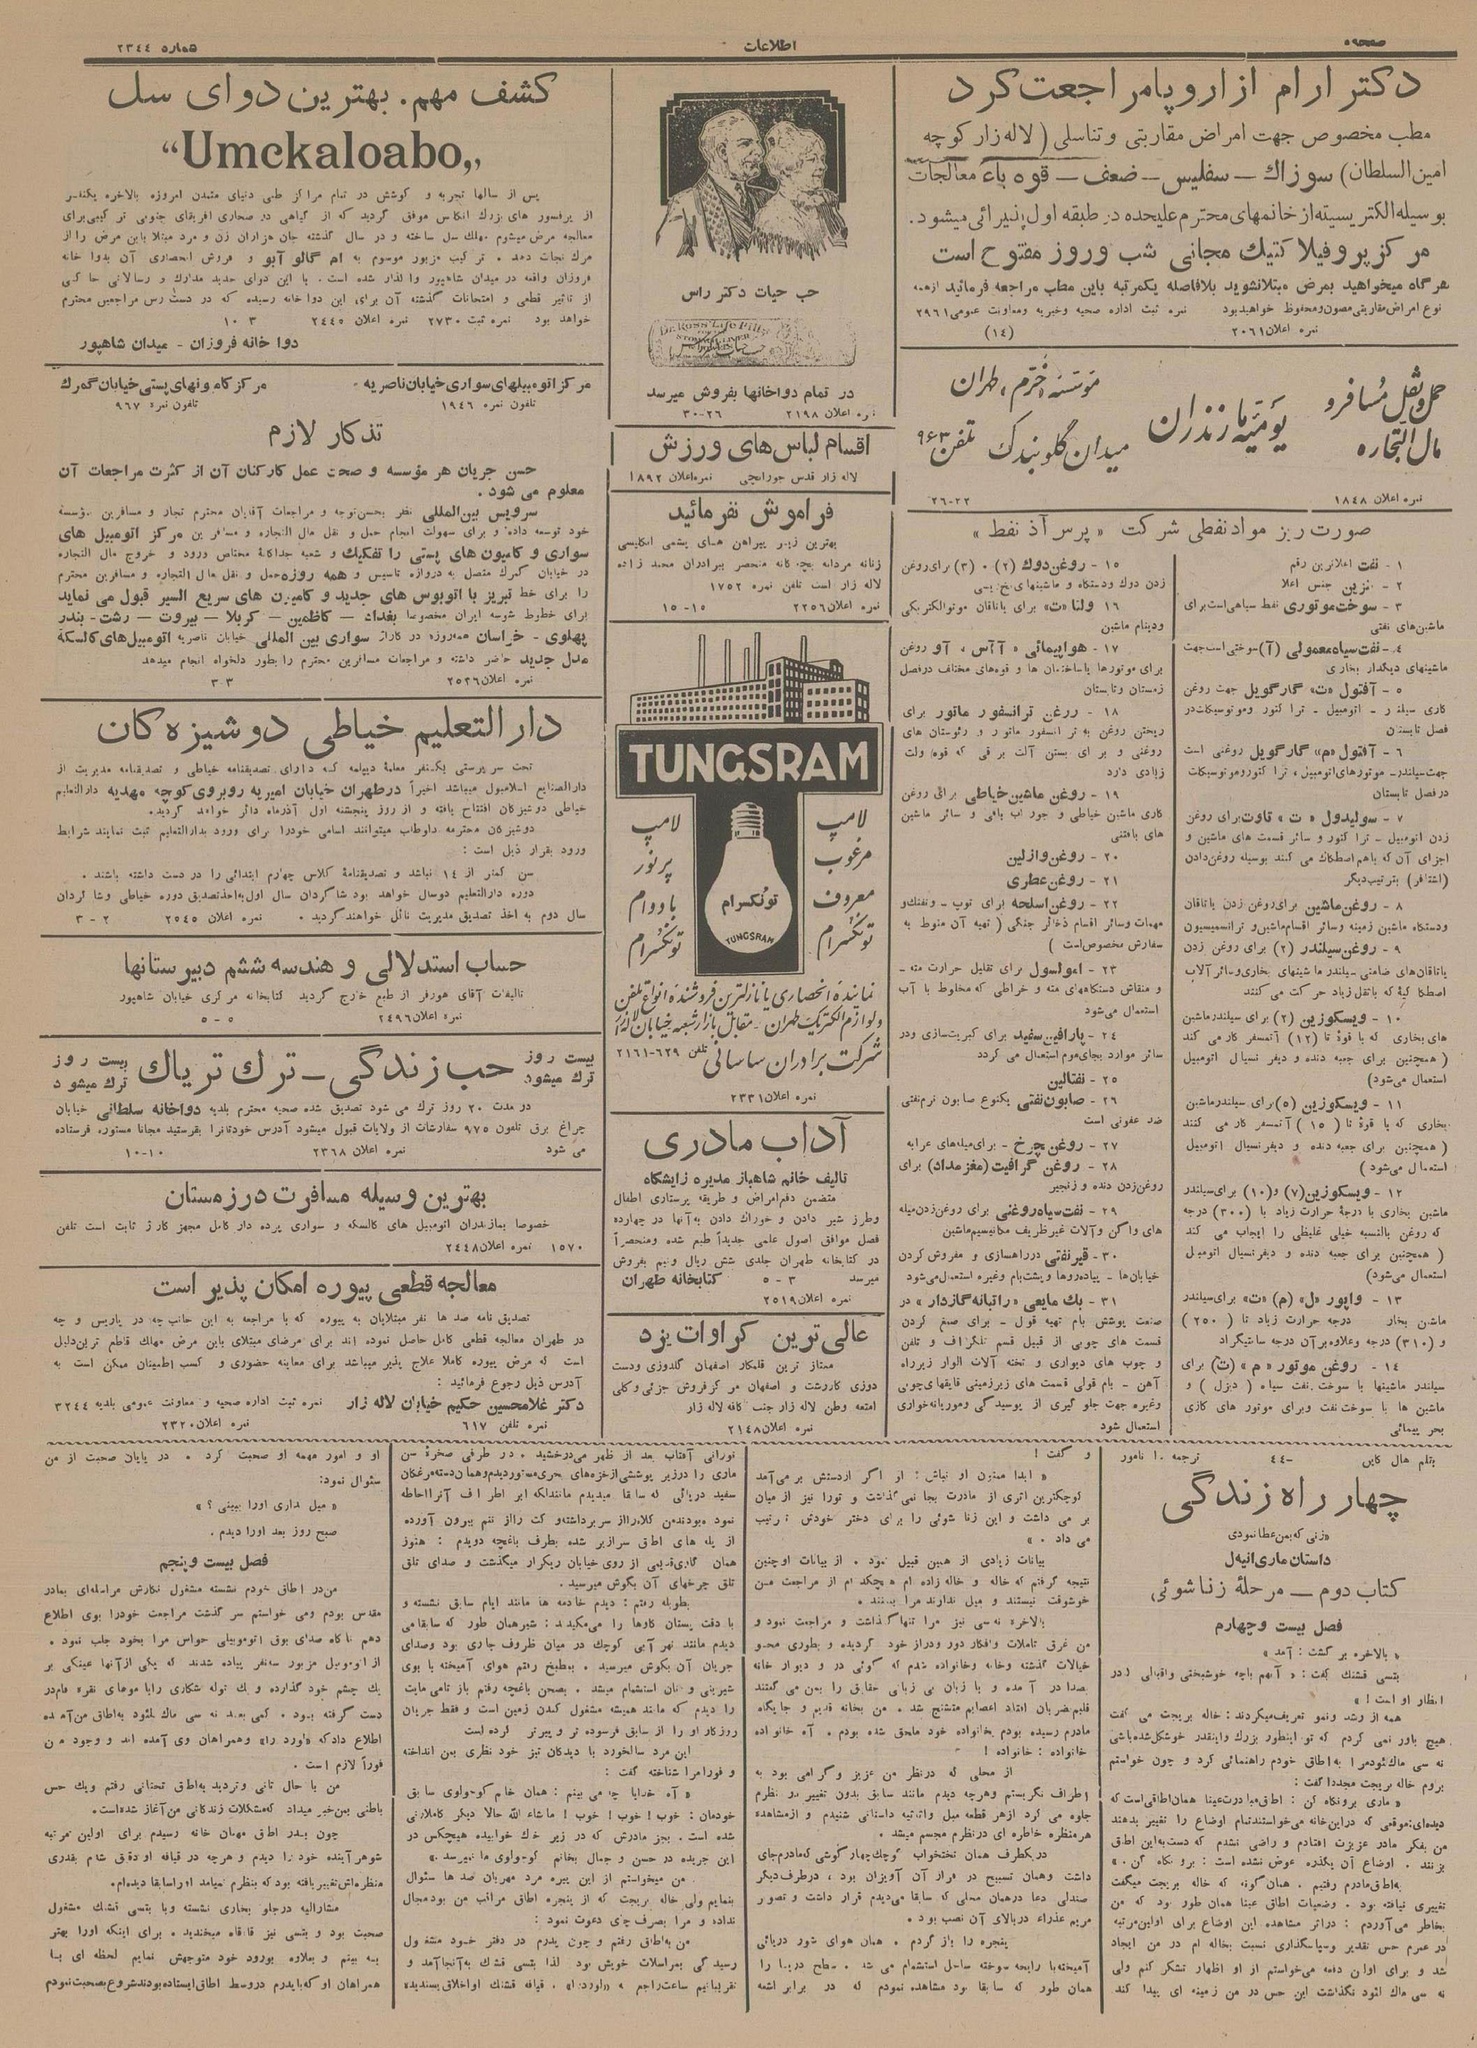 صفحه ۵
اطلاعات
شماره ۲۳٤٤
دکتر ارام از اروپا مراجعت کرد
مطب مخصوص جهت امراض مقاربتی و تناسلی ( لاله زار کوچه
امین السلطان) سوزاك – سفلیس – ضعف – قوه باء معالجات
بوسیله الکتریسیته از خانمهای محترم علیحده در طبقه اول پذیرائی میشود.
مرکز پروفیلاکتیك مجانی شب و روز مفتوح است
هرگاه میخواهید بمرض مبتلا نشوید بلافاصله یکمرتبه باین مطب مراجعه فرمائید از همه
نوع امراض مقاربتی مصون و محفوظ خواهید بود نمره ثبت اداره صحیه و خیریه و معاونت عمومی ۲۹٦۱
نمره اعلان ۲۰٦۱ (۱٤)
حمل و نقل مسافر و
مال التجاره
یومیه مازندران
مؤسسه اخترم، طهران
میدان گلوبندك تلفن ۹٦۳
نمره اعلان ۱۸٤۸ ۲۲-۲٦
صورت ریز مواد نفطی شرکت « پرس آذ نفط »
۱ - نفت اعلاترین رقم
۲ - بنزین جنس اعلا
۳ - سوخت موتوری نفط سیاهی است برای
ماشین‌های نفتی
٤ - نفت سیاه معمولی (آ) سوختی است جهت
ماشینهای دیگدار بخاری
۵ - آفتول «ت» گارگویل جهت روغن
کاری سیلندر - اتومبیل - تراکتور و موتوسیکلت در
فصل تابستان
٦ - آفتول «م» گارگویل روغنی است
جهت سیلندر - موتورهای اتومبیل، تراکتور و موتوسیکلت
در فصل تابستان
۷ - سولیدول « ت » تاوت برای روغن
زدن اتومبیل - تراکتور و سائر قسمت های ماشین و
اجزای آن که باهم اصطکاك می کنند بوسیله روغن‌دان
(اشتافر) بترتیب دیگر
۸ - روغن ماشین برای روغن زدن یاتاقان
ودستگاه ماشین زمینه وسائر اقسام ماشین و ترانسمیسیون
۹ - روغن سیلندر (۲) برای روغن زدن
یاتاقان‌های ضامنی - سیلندر ماشینهای بخاری و سائر آلات
اصطکاکیهٔ که باثقل زیاد حرکت می کنند
۱۰ - ویسکوزین (۲) برای سیلندر ماشین
های بخاری که با قوهٔ تا (۱۲) آتمسفر کار می کند
( همچنین برای جعبه دنده و دیفرنسیال اتومبیل
استعمال می‌شود)
۱۱ - ویسکوزین (۵) برای سیلندر ماشین
بخاری که با قوهٔ تا ( ۱۵ ) آتمسفر کار می کند
( همچنین برای جعبه دنده و دیفرنسیال اتومبیل
استعمال می‌شود )
۱۲ - ویسکوزین (۷) و (۱۰) برای سیلندر
ماشین بخاری با درجهٔ حرارت زیاد با (۳۰۰) درجه
که روغن بالنسبه خیلی غلیظی را ایجاب می کند
( همچنین برای جعبه دنده و دیفرنسیال اتومبیل
استعمال می‌شود)
۱۳ - واپور «ل» (م) «ت» برای سیلندر
ماشین بخار درجه حرارت زیاد تا ( ۲۵۰ )
و (۳۱۰) درجه وعلاوه بر آن درجه سانتیگراد
۱٤ - روغن موتور « م » (ت) برای
سیلندر ماشینها با سوخت نفت سیاه ( دیزل ) و
ماشین ها با سوخت نفت و برای موتور های گازی
بحر پیمائی
۱۵ - روغن دوك (۲) ۰ (۳) برای روغن
زدن دوك ودستگاه و ماشینهای نخ ریسی
۱٦ ولتا «ت» برای یاتاقان موتور الکتریکی
ودینام ماشین
۱۷ - هواپیمائی « آآس ، آو روغن
برای موتورها باساختمان ها و قوه‌های مختلف در فصل
زمستان و تابستان
۱۸ - روغن ترانسفورماتور برای
ریختن روغن به ترانسفورماتور و رئوستان های
روغنی و برای بستن آلت برقی که قوه ولت
زیادی دارد
۱۹ - روغن ماشین خیاطی برای روغن
کاری ماشین خیاطی و جوراب بافی و سائر ماشین
های بافتنی
۲۰ - روغن وازلین
۲۱ - روغن عطری
۲۲ - روغن اسلحه برای توپ - و تفنك و
مهمات و سائر اقسام ذخائر جنگی ( تهیه آن منوط به
سفارش مخصوص است )
۲۳ - امولسول برای تقلیل حرارت مته -
و منقاش دستگاههای مته و خراطی که مخلوط با آب
استعمال می‌شود
۲٤ - پارافین سفید برای کبریت‌سازی ودر
سائر موارد بجای موم استعمال می گردد
۲۵ - نفتالین
۲٦ - صابون نفتی یکنوع صابون نرم نفتی
ضد عفونی است
۲۷ - روغن چرخ - برای میله‌های عرابه
۲۸ - روغن گرافیت (مغز مداد) برای
روغن‌زدن دنده و زنجیر
۲۹ - نفت سیاه روغنی برای روغن‌زدن میله
های واگن و آلات غیر ظریف مکانیسیم ماشین
۳۰ - قیر نفتی در راهسازی و مفروش کردن
خیابان‌ها - پیاده‌روها و پشت‌بام وغیره استعمال می‌شود
۳۱ - بك مایعی «راتبانه گازدار» در
صنعت پوشش بام تهیه قول - برای صمغ کردن
قسمت های چوبی از قبیل قسم تلگراف و تلفن
و چوب های دیواری و تخته آلات الوار زیر راه
آهن - بام قولی قسمت های زیر زمینی قایقهای چوبی
وغیره جهت جلو گیری از پوسیدگی و موریانه‌خواری
استعمال شود
حب حیات دکتر راس
Dr. Ross' Life Pills
در تمام دواخانها بفروش میرسد
نمره اعلان ۲۱۹۸ ۲٦-۳۰
اقسام لباس‌های ورزش
لاله زار قدس جورابچی نمره اعلان ۱۸۹۲
فراموش نفرمائید
بهترین زیر پیراهن های پشمی انگلیسی
زنانه مردانه بچه‌گانه منحصر ببرادران محمد زاده
لاله زار است تلفن نمره ۱۷۵۲
نمره اعلان ۲۲۵٦ ۱۵-۱۵
TUNGSRAM
لامپ
مرغوب
معروف
تونگسرام
لامپ
پر نور
با دوام
تونگسرام
تونگسرام
TUNGSRAM
نماینده انحصاری یا نازلترین فروشنده انواع تلفن
و لوازم الکتریك طهران - مقابل بازار شعبه خیابان لاله‌زار
شرکت برادران ساسانی تلفن ٦۲۹-۲۱٦۱
نمره اعلان ۲۳۳۱
آداب مادری
تالیف خانم شاهباز مدیره زایشگاه
متضمن دفع امراض و طریقه پرستاری اطفال
وطرز شیر دادن و خوراك دادن به‌آنها در چهارده
فصل موافق اصول علمی جدیداً طبع شده ومنحصراً
در کتابخانه طهران جلدی شش ریال ونیم بفروش
میرسد ۳ - ۵ کتابخانه طهران
نمره اعلان ۲۵۱۹
عالی ترین کراوات یزد
ممتاز ترین قلمکار اصفهان گلدوزی ودست
دوزی کار رشت و اصفهان مرکز فروش جزئی و کلی
امتعه وطن لاله زار جنب کافه لاله زار
نمره اعلان ۲۱٤۸
کشف مهم. بهترین دوای سل
“Umckaloabo„
پس از سالها تجربه و کوشش در تمام مراکز طبی دنیای متمدن امروزه بالاخره یکنفر
از پرفسور های بزرك انگلیس موفق گردید که از گیاهی در صحاری افریقای جنوبی ترکیبی برای
معالجه مرض میشوم مهلك سل ساخته و در سال گذشته جان هزاران زن و مرد مبتلا باین مرض را از
مرك نجات دهد . ترکیب مزبور موسوم به ام گالو آبو و فروش انحصاری آن بدوا خانه
فروزان واقعه در میدان شاهپور واگذار شده است . با این دوای جدید مدارك و رسالاتی حاکی
از تاثیر قطعی و امتحانات گذشته آن برای این دواخانه رسیده که در دست‌رس مراجعین محترم
خواهد بود نمره ثبت ۲۷۳۰ نمره اعلان ۲٤٤۵ ۳ ۱۰
دوا خانه فروزان - میدان شاهپور
مرکز اتومبیلهای سواری خیابان ناصریه
تلفون نمره ۱۹٤٦
مرکز کامیونهای پستی خیابان گمرك
تلفون نمره ۹٦۷
تذکار لازم
حسن جریان هر مؤسسه و صحت عمل کارکنان آن از کثرت مراجعات آن
معلوم می شود .
سرویس بین‌المللی نظر بحسن توجه و مراجعات آقایان محترم تجار و مسافرین مؤسسهٔ
خود توسعه داده و برای سهولت انجام حمل و نقل مال التجاره و مسافرین مرکز اتومبیل های
سواری و کامیون های پستی را تفکیك و شعبه جداگانهٔ مختاص ورود و خروج مال التجاره
در خیابان گمرك متصل به دروازه تاسیس و همه روزه حمل و نقل مال التجاره و مسافرین محترم
را برای خط تبریز با اتوبوس های جدید و کامیون های سریع السیر قبول می نماید
برای خطوط شوسه ایران مخصوصا بغداد – کاظمین – کربلا – بیروت – رشت - بندر
پهلوی - خراسان همه‌روزه در گاراژ سواری بین المللی خیابان ناصریه اتومبیل های کالسکهٔ
مدل جدید حاضر داشته و مراجعات مسافرین محترم را بطور دلخواه انجام میدهد
نمره اعلان ۲۵۲٦ ۳-۳
دار التعلیم خیاطی دوشیزه کان
تحت سرپرستی یکنفر معلمهٔ دیپلمه که دارای تصدیقنامه خیاطی و تصدیقنامه مدیریت از
دارالصنایع اسلامبول میباشد اخیراً در طهران خیابان امیریه روبروی کوچه مهدیه دارالتعلیم
خیاطی دوشیزکان افتتاح یافته و از روز پنجشنبه اول آذرماه دائر خواهد گردید.
دوشیزکان محترمه داوطلب میتوانند اسامی خودرا برای ورود بدارالتعلیم ثبت نمایند شرایط
ورود بقرار ذیل است :
سن کمتر از ۱٤ نباشد و تصدیقنامهٔ کلاس چهارم ابتدائی را در دست داشته باشند .
دوره دارالتعلیم دوسال خواهد بود شاگردان سال اول به‌اخذ تصدیق دوره خیاطی وشاگردان
سال دوم به اخذ تصدیق مدیریت نائل خواهند گردید . نمره اعلان ۲۵٤۵ ۲ - ۳
حساب استدلالی و هندسه ششم دبیرستانها
تالیفات آقای هورفر از طبع خارج گردید کتابخانه مرکزی خیابان شاهپور
نمره اعلان ۲٤۹٦ ۵ - ۵
بیست روز
ترك میشود
حب زندگی – ترك تریاك
بیست روز
ترك میشود
در مدت ۲۰ روز ترك می شود تصدیق شده صحیه محترم بلدیه دواخانه سلطانی خیابان
چراغ برق تلفون ۹۷۵ سفارشات از ولایات قبول میشود آدرس خودتانرا بفرستید مجانا مستوره فرستاده
می شود نمره اعلان ۲۳٦۸ ۱۰-۱۰
بهترین وسیله مسافرت در زمستان
خصوصا بمازندران اتومبیل های کالسکه و سواری پرده دار کامل مجهز کاراژ ثابت است تلفن
۱۵۷۰ نمره اعلان ۲٤٤۸
معالجه قطعی پیوره امکان پذیر است
تصدیق نامه صد ها نفر مبتلایان به پیوره که با مراجعه به این جانب چه در پاریس و چه
در طهران معالجه قطعی کامل حاصل نموده اند برای مرضای مبتلای باین مرض مهلك قاطع ترین دلیل
است له مرض پیوره کاملا علاج پذیر میباشد برای معاینه حضوری و کسب اطمینان ممکن است به
آدرس ذیل رجوع فرمائید :
دکتر غلامحسین حکیم خیابان لاله زار نمره ثبت اداره صحیه و معاونت عمومی بلدیه ۳۲٤٤
نمره تلفن ٦۱۷ نمره اعلان ۲۳۲۰
بقلم هال کاین -٤٤ ترجمه ۱۰ نامور
چهار راه زندگی
«زنی که بمن عطا نمودی
داستان ماری انیه‌ل
کتاب دوم – مرحلهٔ زناشوئی
فصل بیست وچهارم
« بالاخره بر گشت : آمد »
بتسی قشنك گفت : « آنهم باچه خوشبختی واقبالی که در
انتظار او است ! »
همه از رشد ونمو تعریف میکردند : خاله بریجت می گفت
هیچ باور نمی کردم که تو اینطور بزرك واینقدر خوشکل شده باشی
نه سی ماك لئود مرا به‌اطاق خودم راهنمائی کرد و چون خواستم
بروم خاله بریجت مجددا گفت :
« ماری برو نگاه کن : اطاق مبادرت عینا همان اطاقی است که
دیده‌ای: موقعی که در این خانه می‌خواستند تمام اوضاع را تغییر بدهند
من بفکر مادر عزیزت افتادم و راضی نشدم که دست به این اطاق
بزنند . اوضاع آن یکذره عوض نشده است : برو نگاه کن . »
به‌اطاق مادرم رفتیم . همان گونه که خاله بریجت میگفت
تغییری نیافته بود . وضعیات اطاق عینا همان طور بود که من
بخاطر می‌آوردم : در اثر مشاهده این اوضاع برای اولین مرتبه
در عمرم حس تقدیر وسپاسگذاری نسبت بخاله ام در من ایجاد
شد و برای اولین دفعه می‌خواستم از او اظهار تشکر کنم ولی
نه سی ماك لئود نگذاشت این حس در من زمینه ای پیدا کند
و گفت !
« ابدا ممنون او نباش : او اگر از دستش بر می‌آمد
کوچکترین اثری از مادرت بجا نمی گذاشت و تورا نیز از میان
بر می داشت و این زناشوئی را برای دختر خودش ترتیب
می داد . »
بیانات زیادی از همین قبیل نمود . از بیانات او چنین
نتیجه گرفتم که خاله و خاله زاده ام هیچکدام از مراجعت من
خوشوقت نیستند و میل ندارند مرا ببینند .
بالاخره نه سی نیز مرا تنها گذاشت و مراجعت نمود و
من غرق تاملات وافکار دور ودراز خود گردیده و بطوری محو
خیالات گذشته وخانه وخانواده شدم که گوئی در و دیوار خانه
بصدا در آمده و با زبان بی زبانی حقایق را بمن می گفتند
قلبم ضربان افتاد اعصابم متشنج شد . من بخانه قدیم و جایگاه
مادرم رسیده بودم بخانواده خود ملحق شده بودم . آه خانواده
خانواده : خانواده !
از محلی که در نظر من عزیز و گرامی بود به
اطراف نگریستم وهرچه دیدم مانند سابق بدون تغییر در نظرم
جلوه می کرد از هر قطعه مبل واثاثیه داستانی شنیدم و از مشاهده
هر منظره خاطره ای در نظرم مجسم میشد .
در یکطرف همان تختخواب کوچك چهار گوشی که مادرم جای
داشت وهمان تسبیح در فراز آن آویزان بود ، در طرف دیگر
صندلی دعا در همان محلی که سابقا می‌دیدم قرار داشت و تصویر
مریم عذراء در بالای آن نصب بود .
پنجره را باز کردم . همان هوای شور دریائی
آمیخته با رایحه سوخته ساحل استشمام می شد . سطح دریا را
همان طور که سابقا بود مشاهده نمودم که در برابر اشعه
نورانی آفتاب بعد از ظهر می‌درخشید . در طرفی صخرهٔ سن
ماری را در زیر پوششی از خزه‌های بحری مستور دیدم وهمان دسته مرغکان
سفید دریائی که سابقا میدیدم مانند لکه ابر اطراف آنرا احاطه
نموده بودند من کلاه را از سر برداشته و کت را از تنم بیرون آورده
از پله های اطاق سرازیر شده بطرف باغچه دویدم : هنوز
همان گاری قدیمی از روی خیابان ریگزار میگذشت و صدای تلق
تلق چرخهای آن بگوش میرسید .
بطویله رفتم : دیدم خادمه ها مانند ایام سابق نشسته و
با دقت پستان گاوها را می‌مکیدند : شیر همان طور که سابقا می
دیدم مانند نهر آبی کوچك در میان ظروف جاری بود وصدای
جریان آن بگوش میرسید . به‌مطبخ رفتم هوای آمیخته با بوی
شیرینی و نان استشمام میشد . بصحن باغچه رفتم باز تامی مایت
را دیدم که مانند همیشه مشغول کندن زمین است و فقط جریان
روزگار او را از سابق فرسوده تر و پیرتر کرده است
این مرد سالخورد با دیدگان تیز خود نظری بمن انداخته
و فورا مرا شناخته گفت :
« آه خدایا چه می بینم : همان خانم کوچولوی سابق
خودمان : خوب ! خوب ! خوب ! ماشاء الله حالا دیگر کاملازنی
شده است . بجز مادرش که در زیر خاك خوابیده هیچکس در
این جزیره در حسن و جمال بخانم کوچولوی ما نمیرسد . »
من میخواستم از این پیره مرد مهربان صد ها سئوال
بنمایم ولی خاله بریجت که از پنجره اطاق مراقب من بود مجال
نداده و مرا بصرف چای دعوت نمود :
من به‌اطاق رفتم و چون پدرم در دفتر خود مشغول
رسیدگی بمراسلات خویش بود لذا بتسی قشنك به آنجا آمد و
تقریبا نیم ساعت راجع به «لورد را» . قیافه قشنك او اخلاق پسندیده
او و امور مهمه او صحبت کرد . در پایان صحبت از من
سئوال نمود:
« میل داری اورا ببینی ؟ »
صبح روز بعد اورا دیدم .
فصل بیست و پنجم
من در اطاق خودم نشسته مشغول نگارش مراسله‌ای بمادر
مقدس بودم ومی خواستم سرگذشت مراجعت خودرا بوی اطلاع
دهم ناگاه صدای بوق اتوموبیلی حواس مرا بخود جلب نمود .
از اتوموبیل مزبور سه نفر پیاده شدند که یکی از آنها عینکی بر
یك چشم خود گذارده و یك توله شکاری را با موهای نقره فام در
دست گرفته بود . کمی بعد نه سی ماك لئود به‌اطاق من آمده
اطلاع داد که «لورد را» وهمراهان وی آمده اند و وجود من
فوراً لازم است .
من با حال تانی وتردید به‌اطاق تحتانی رفتم ویك حس
باطنی بمن خبر میداد که مشکلات زندگانی من آغاز شده است.
چون بدر اطاق مهمان خانه رسیدم برای اولین مرتبه
شوهر آینده خود را دیدم و هرچه در قیافه او دقیق شدم بقدری
منظره اش تغییر یافته بود که بنظرم نمیامد او را سابقا دیده‌ام.
مشارالیه در جلو بخاری نشسته وبا بتسی قشنك مشغول
صحبت بود و بتسی نیز قاه‌قاه میخندید . برای اینکه اورا بهتر
به بینم و بعلاوه بورود خود متوجهش نمایم لحظه ای با
همراهان او که با پدرم در وسط اطاق ایستاده بودند شروع بصحبت نمودم